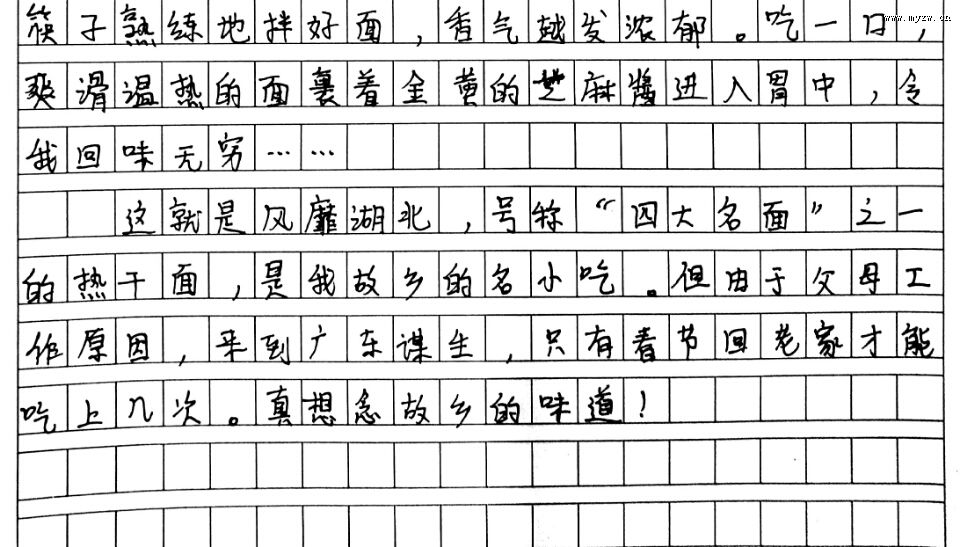 www.myzw.cn
筷子熟练地拌好面，香气越发浓郁。吃一口，
爽滑温热的面裹着金黄的芝麻酱进入胃中，令
我回味无穷……
这就是风靡湖北，号称“四大名面”之一
的热干面，是我故乡的名小吃。但由于父母工
作原因，来到广东谋生，只有春节回老家才能
吃上几次。真想念故乡的味道！